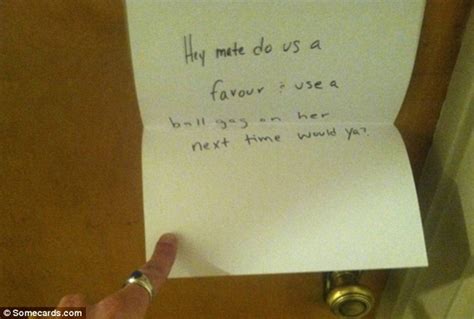 Hey mate do us a
favour & use a
ball gag on her
next time would ya?
© Somecards.com